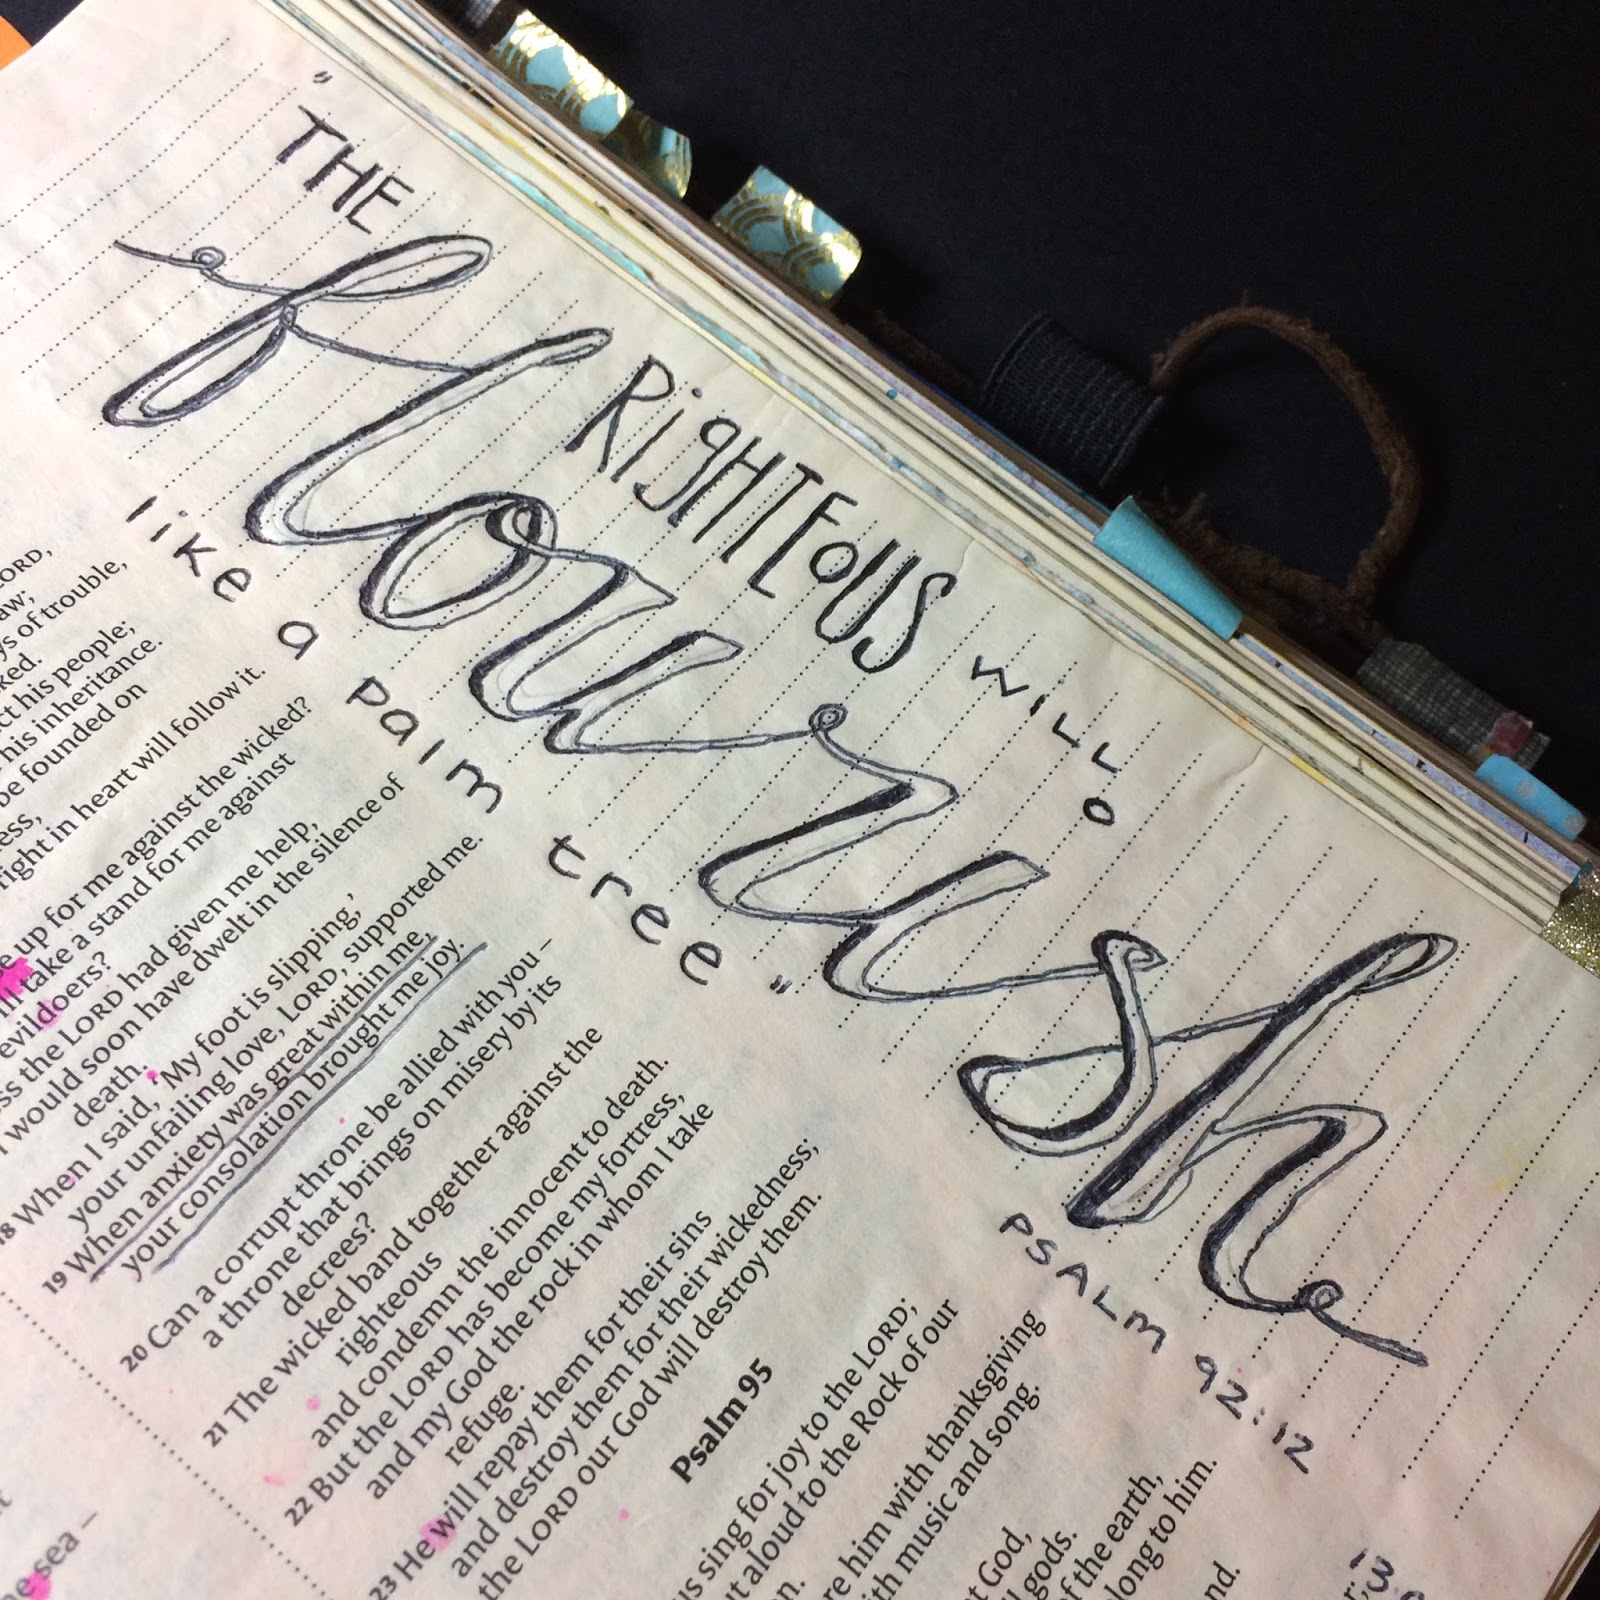 "THE
RIGHTEOUS WILL
flourish
like a palm tree"
PSALM 92:12
LORD,
of trouble,
his people;
his inheritance.
be founded on
right in heart will follow it.
up for me against the wicked?
take a stand for me against
evildoers?
the LORD had given me help,
I would soon have dwelt in the silence of
death.
18 When I said, 'My foot is slipping,'
your unfailing love, LORD, supported me.
19 When anxiety was great within me,
your consolation brought me joy.
20 Can a corrupt throne be allied with you –
a throne that brings on misery by its
decrees?
21 The wicked band together against the
righteous
and condemn the innocent to death.
22 But the LORD has become my fortress,
and my God the rock in whom I take
refuge.
23 He will repay them for their sins
and destroy them for their wickedness;
the LORD our God will destroy them.
Psalm 95
sing for joy to the LORD;
aloud to the Rock of our
him with thanksgiving
with music and song.
God,
gods.
of the earth,
belong to him.
sea –